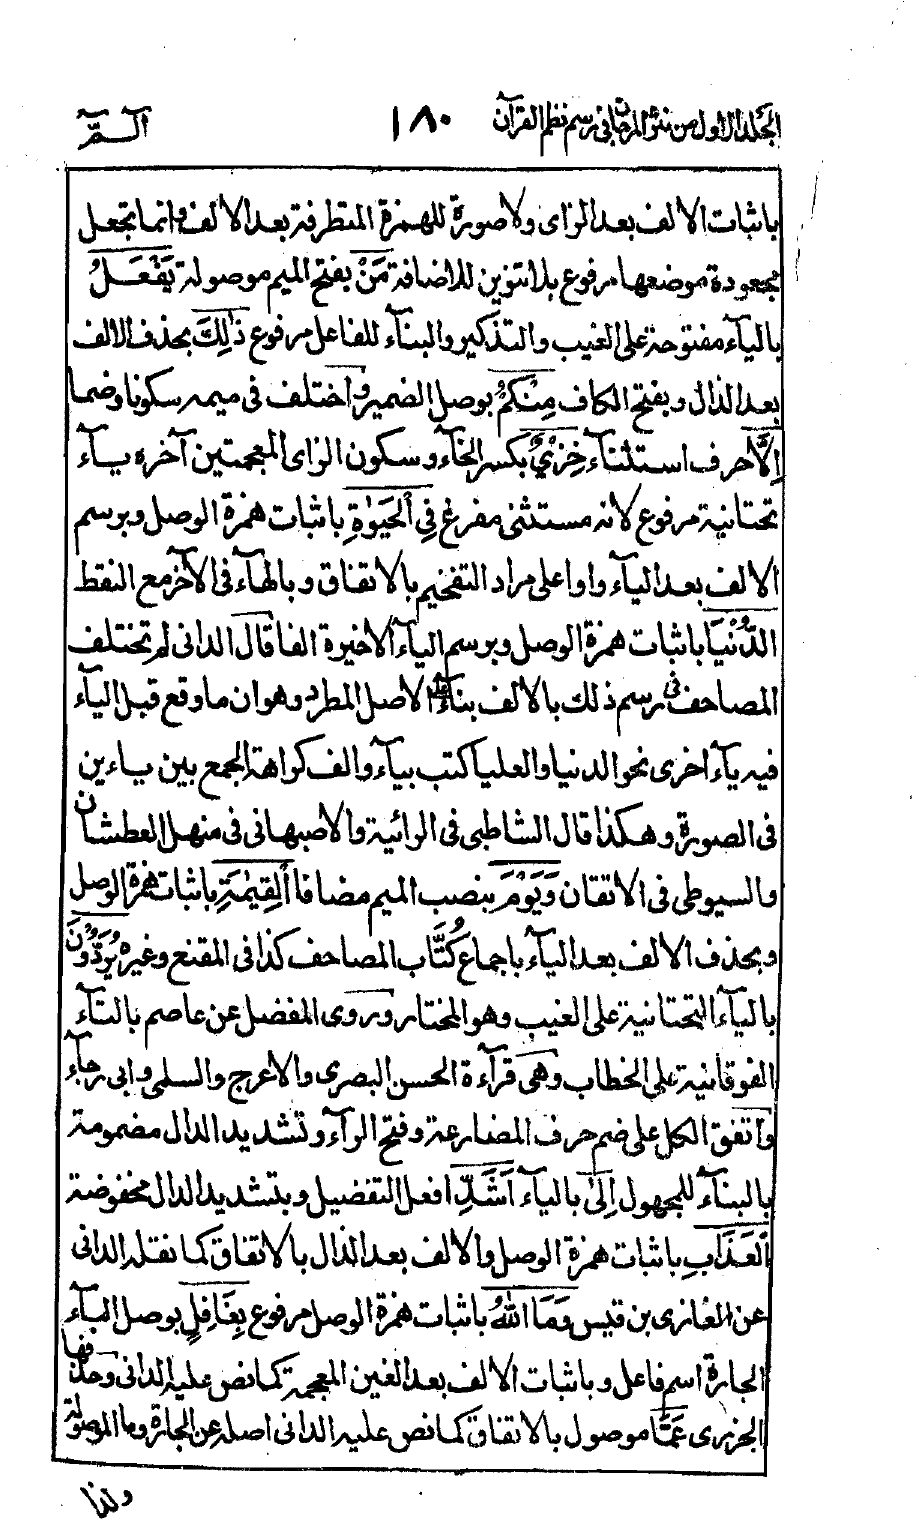 المجلد الاول من نثر المرجان في رسم نظم القرآن ١٨٠ الٓـمّٓ
باثبات الالف بعد الزاى ولا صورة للهمزة المتطرفة بعد الالف وانما تجعل
مجعودة موضعها مرفوع بلا تنوين للاضافة مَنْ بفتح الميم موصولة يَفْعَلُ
بالياء مفتوحة على الغيب والتذكير والبناء للفاعل مرفوع ذٰلِكَ بحذف الالف
بعد الذال وبفتح الكاف مِنْكُمْ بوصل الضمير واختلف فى ميمه سكونا وضما
اِلَّا حرف استثناء خِزْىٌ بكسر الخاء وسكون الزاى المعجمتين آخره ياء
تحتانية مرفوع لانه مستثنى مفرغ فِى الْحَيٰوةِ باثبات همزة الوصل وبرسم
الالف بعد الياء واوا على مراد التفخيم بالاتفاق وبالهاء فى الآخر مع النقط
الدُّنْيَا باثبات همزة الوصل وبرسم الياء الاخيرة الفا قال الدانى لم تختلف
المصاحف فى رسم ذلك بالالف بناء على الاصل المطرد وهو ان ما وقع قبل الياء
فيه ياء اخرى نحو الدنيا والعليا كتب بياء والف كراهة الجمع بين ياءين
فى الصورة وهكذا قال الشاطبى فى الرائية والاصبهانى فى منهل العطشان
والسيوطى فى الاتقان وَيَوْمَ بنصب الميم مضافا الْقِيٰمَةِ باثبات همزة الوصل
وبحذف الالف بعد الياء باجماع كُتَّاب المصاحف كذا فى المقنع وغيره يُرَدُّوْنَ
بالياء التحتانية على الغيب وهو المختار وروى المفضل عن عاصم بالتاء
الفوقانية على الخطاب وهى قرآءة الحسن البصرى والاعرج والسلمى وابى رجاء
واتفق الكل على ضم حرف المضارعة وفتح الراء وتشديد الدال مضمومة
بالبناء للمجهول اِلٰى بالياء اَشَدِّ افعل التفضيل وبتشديد الدال مخفوضة
الْعَذَابِ باثبات همزة الوصل والالف بعد الذال بالاتفاق كما نقله الدانى
عن الغازى بن قيس وَمَا اللّٰهُ باثبات همزة الوصل مرفوع بِغَافِلٍ بوصل الباء
الجارة اسم فاعل وباثبات الالف بعد الغين المعجمة كما نص عليه الدانى وحذفها
الجزرى عَمَّا موصول بالاتفاق كما نص عليه الدانى اصله عن الجارة وما الموصولة
ولذا